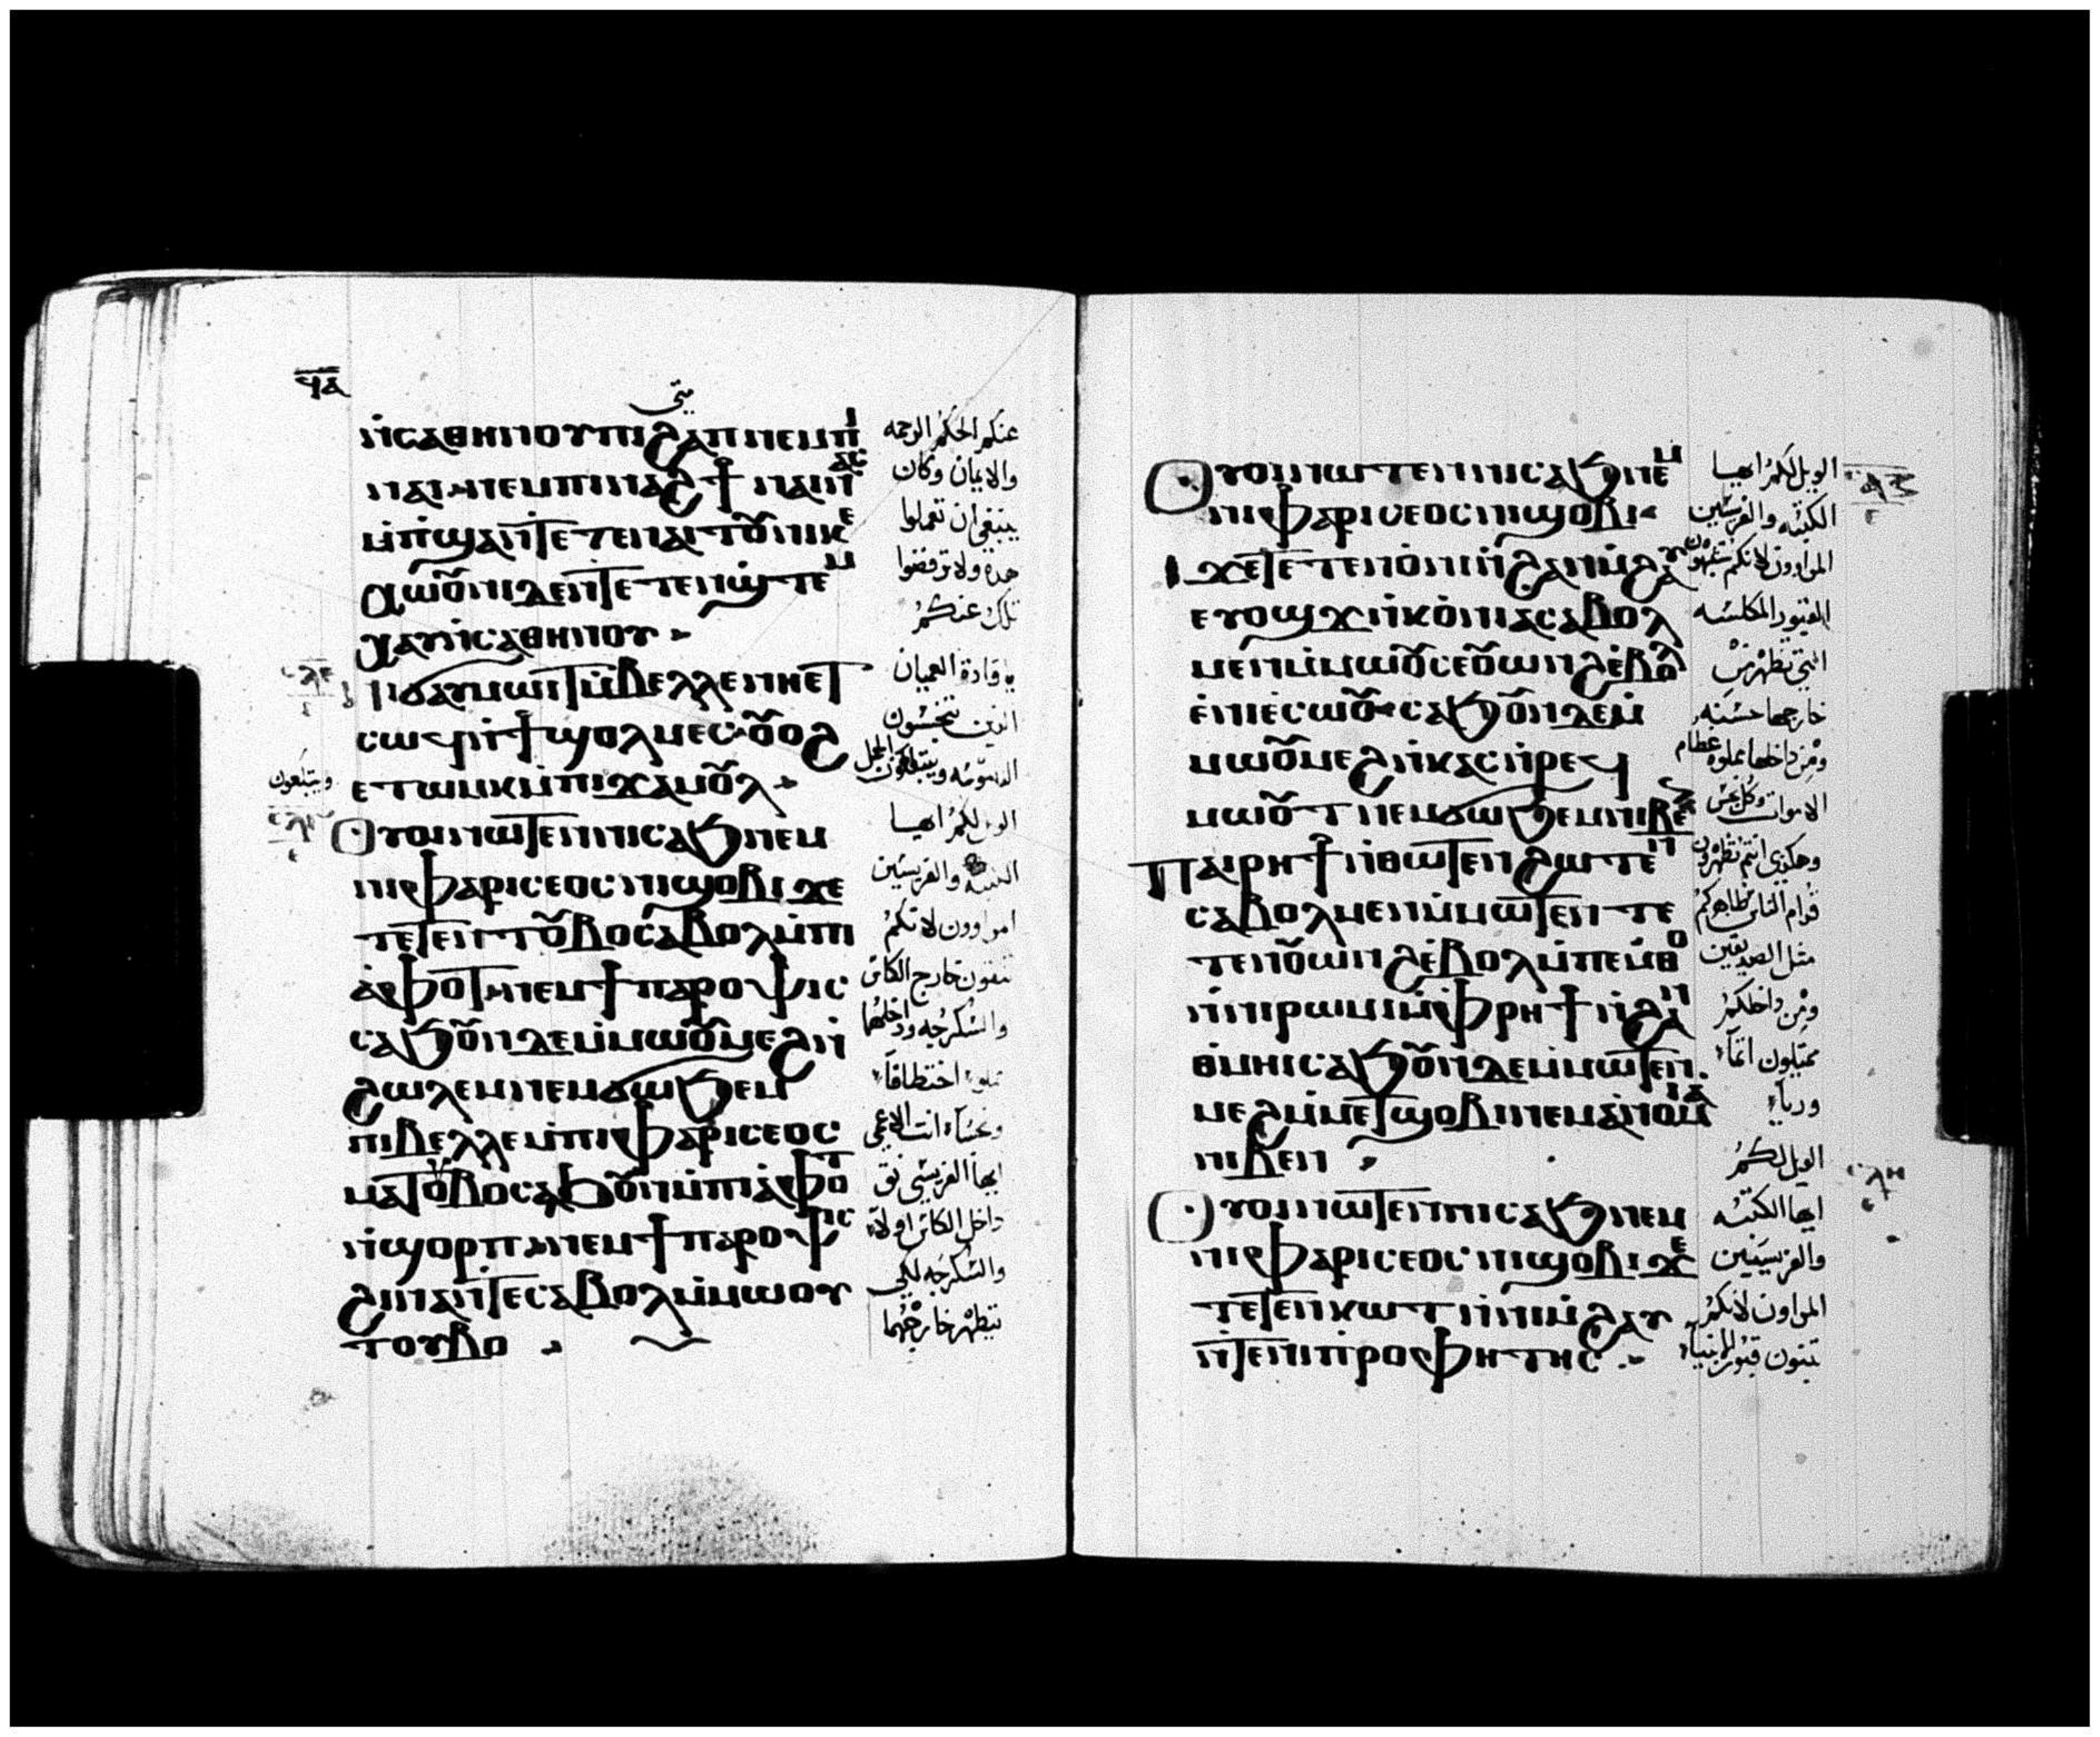 ϥⲁ
متى
ⲛⲥⲁⲑⲏⲛⲟⲩⲡⲓϩⲁⲡⲛⲉⲙⲡⲓ
ⲛⲁⲓⲛⲉⲙⲡⲓⲛⲁϩϯ ⲛⲁⲓⲇⲉ
ⲙⲡϣⲁⲛⲧⲉⲧⲉⲛⲁⲓⲧⲟⲩⲛⲓⲕⲉ
ⲭⲱⲟⲩⲛⲓⲇⲉⲛⲧⲉⲧⲉⲛϣⲧⲉⲙ
ⲭⲁⲩⲛⲥⲁⲑⲏⲛⲟⲩ
ⲛⲓϭⲁⲩⲙⲱⲓⲧⲙⲃⲉⲗⲗⲉⲛⲏⲉⲧ
ⲥⲱϥⲛϯϣⲟⲗⲙⲉⲥ ⲟⲩⲟϩ
ⲉⲧⲱⲙⲕⲙⲡⲓϫⲁⲙⲟⲩⲗ
ⲟⲩⲟⲓⲛⲱⲧⲉⲛⲛⲓⲥⲁϧⲛⲉⲙ
ⲛⲓⲫⲁⲣⲓⲥⲉⲟⲥⲛⲓϣⲟⲃⲓϫⲉ
ⲧⲉⲧⲉⲛⲧⲟⲩⲃⲟⲥⲁⲃⲟⲗⲙⲡⲓ
ⲁⲫⲟⲧⲛⲉⲙϯⲡⲁⲣⲟⲯⲓⲥ
ⲥⲁϧⲟⲩⲛⲇⲉⲙⲙⲱⲟⲩⲙⲉϩⲛ
ϩⲱⲗⲉⲙⲛⲉⲙϭⲱϧⲉⲙ
ⲡⲓⲃⲉⲗⲗⲉⲙⲡⲓⲫⲁⲣⲓⲥⲉⲟⲥ
ⲙⲁⲧⲟⲩⲃⲟⲥⲁϧⲟⲩⲛⲙⲡⲓⲁⲫⲟⲧ
ⲛϣⲟⲣⲡⲛⲉⲙϯⲡⲁⲣⲟⲯⲓⲥ
ϩⲓⲛⲁⲛⲧⲉⲥⲁⲃⲟⲗⲙⲙⲱⲟⲩ
ⲧⲟⲩⲃⲟ
عنكم الحكم الرحمه
والايمان وكان
ينبغي ان تعملوا
هذه ولا ترفضوا
تلك عنكم
يا قادة العميان
ويبتلعون
الويل لكم ايها
الكتبه والفريسيين
المراوون لانكم
تنقون خارج الكاس
والسكرجه وداخلهما
اختطافا
انت الاعمى
ايها الفريسي نق
داخل الكاس اولا
والسكرجه لكي
يتطهر خارجهما
ⲟⲩⲟⲓⲛⲱⲧⲉⲛⲛⲓⲥⲁϧⲛⲉⲙ
ⲛⲓⲫⲁⲣⲓⲥⲉⲟⲥⲛⲓϣⲟⲃⲓ
ϫⲉⲧⲉⲧⲉⲛⲟⲛⲓⲛϩⲁⲛⲙϩⲁⲩ
ⲉⲩⲟϣϫⲛⲕⲟⲛⲓⲁⲥⲁⲃⲟⲗ
ⲙⲉⲛⲙⲙⲱⲟⲩⲥⲉⲟⲩⲱⲛϩⲉⲃⲟⲗ
ⲉⲛⲉⲥⲱⲟⲩ ⲥⲁϧⲟⲩⲛⲇⲉⲙ
ⲙⲱⲟⲩⲙⲉϩⲛⲕⲁⲥⲛⲣⲉϥ
ⲙⲱⲟⲩⲧⲛⲉⲙϭⲱϧⲉⲙⲛⲓⲃⲉⲛ
ⲡⲁⲓⲣⲏϯⲛⲑⲱⲧⲉⲛϩⲱⲧⲉⲛ
ⲥⲁⲃⲟⲗⲙⲉⲛⲙⲙⲱⲧⲉⲛⲧⲉ
ⲧⲉⲛⲟⲩⲱⲛϩⲉⲃⲟⲗⲙⲡⲉⲙⲑⲟ
ⲛⲛⲓⲣⲱⲙⲓⲙⲫⲣⲏϯⲛϩⲁⲛ
ⲑⲙⲏⲓⲥⲁϧⲟⲩⲛⲇⲉⲙⲙⲱⲧⲉⲛ
ⲙⲉϩⲙⲙⲉⲧϣⲟⲃⲓⲛⲉⲙⲁⲛⲟⲙⲓⲁ
ⲛⲓⲃⲉⲛ
ⲟⲩⲟⲓⲛⲱⲧⲉⲛⲛⲓⲥⲁϧⲛⲉⲙ
ⲛⲓⲫⲁⲣⲓⲥⲉⲟⲥⲛⲓϣⲟⲃⲓϫⲉ
ⲧⲉⲧⲉⲛⲕⲱⲧⲛⲛⲓⲙϩⲁⲩ
ⲛⲧⲉⲛⲓⲡⲣⲟⲫⲏⲧⲏⲥ
الويل لكم ايها
الكتبه والفريسيين
المراوون لانكم تشبهون
القبور المكلسه
التي تظهر من
خارجها حسنه
ومن داخلها مملوه عظام
الاموات وكل نجس
وهكذي انتم تظهرون
قدام الناس ظاهركم
مثل الصديقين
ومن داخلكم
ممتلون اثما
ورياء
الويل لكم
ايها الكتبه
والفريسيين
المراون لانكم
تبنون قبور الانبياء